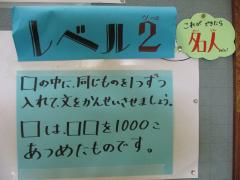 レベル2
これが できたら
名人
□の中に、同じものを1つずつ
入れて、文をかんせいさせましょう。
□は、□□を1000こ
あつめたものです。